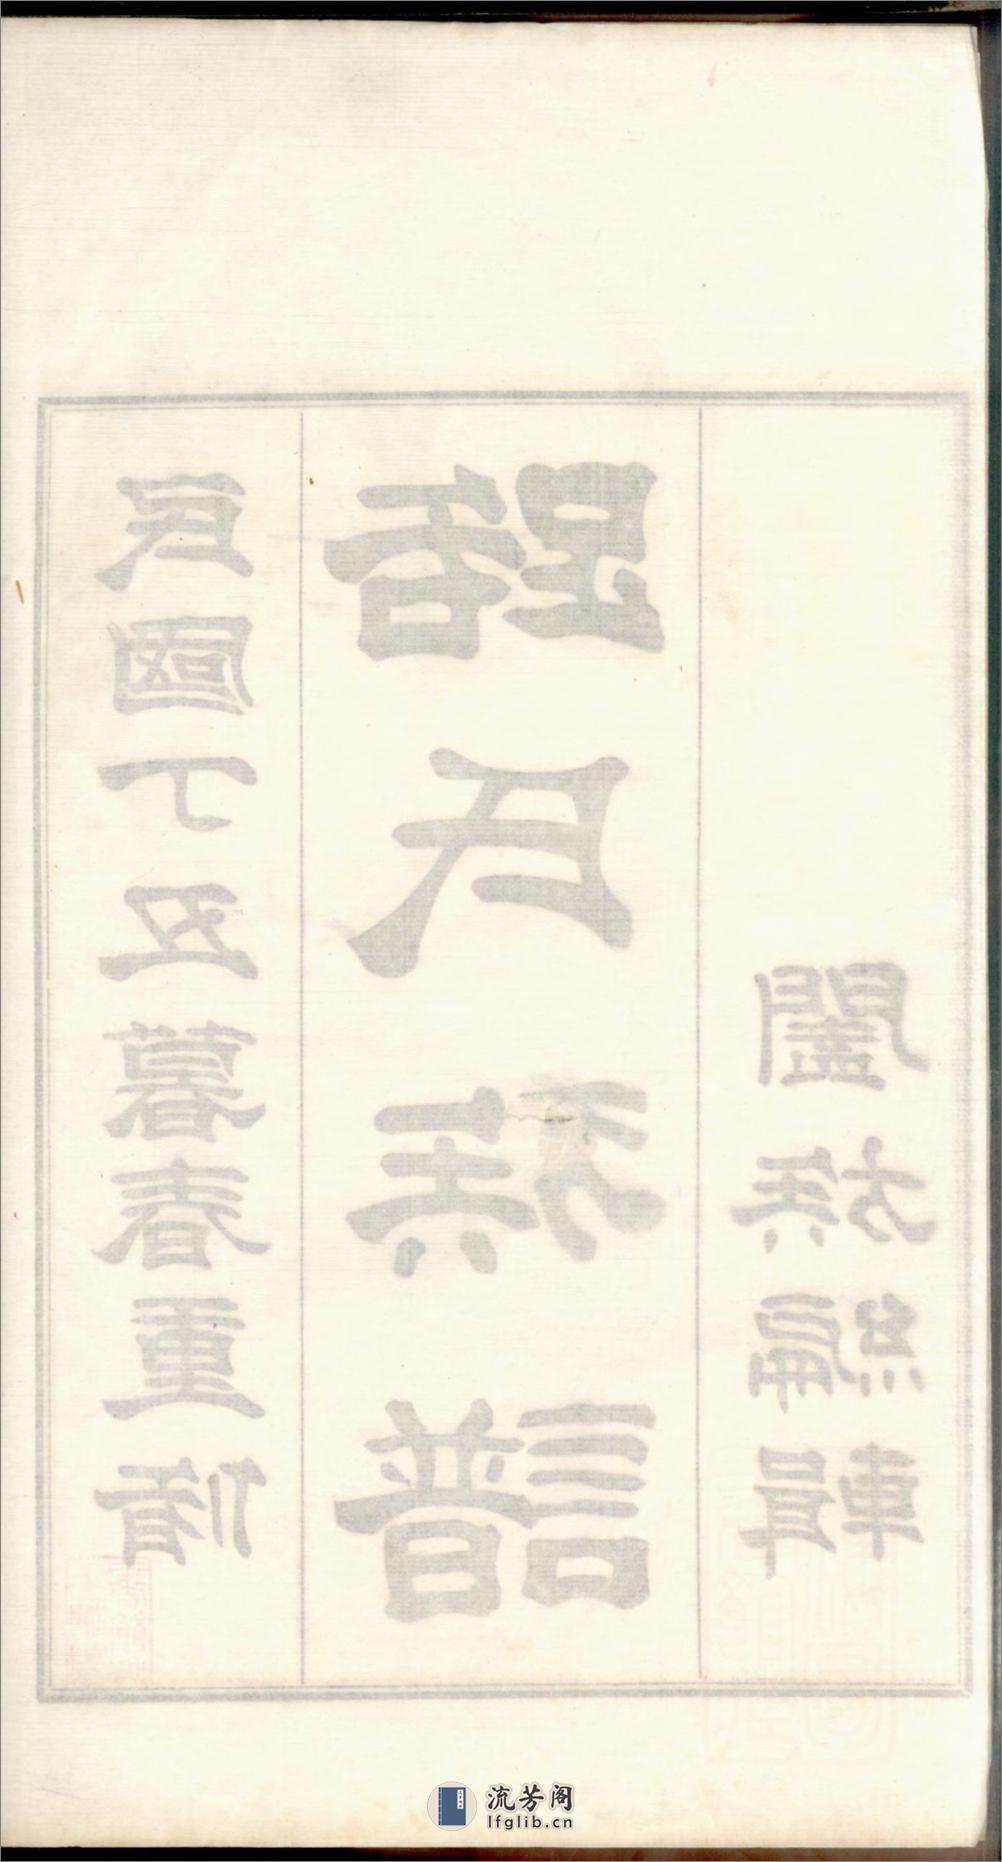 民國丁丑暮春重脩
路氏族譜
闔族編輯
流芳阁
lfglib.cn